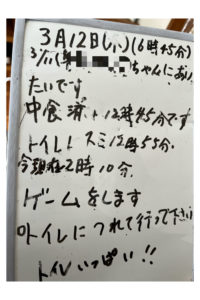 3月12日(小)(6時45分)
3/11( ちゃんにあい
たいです
中食 済 12時45分です
トイレスミ12時55分.
今現在2時10分.
ゲームをします
トイレにつれて行って下さい
トイレいっぱい!!